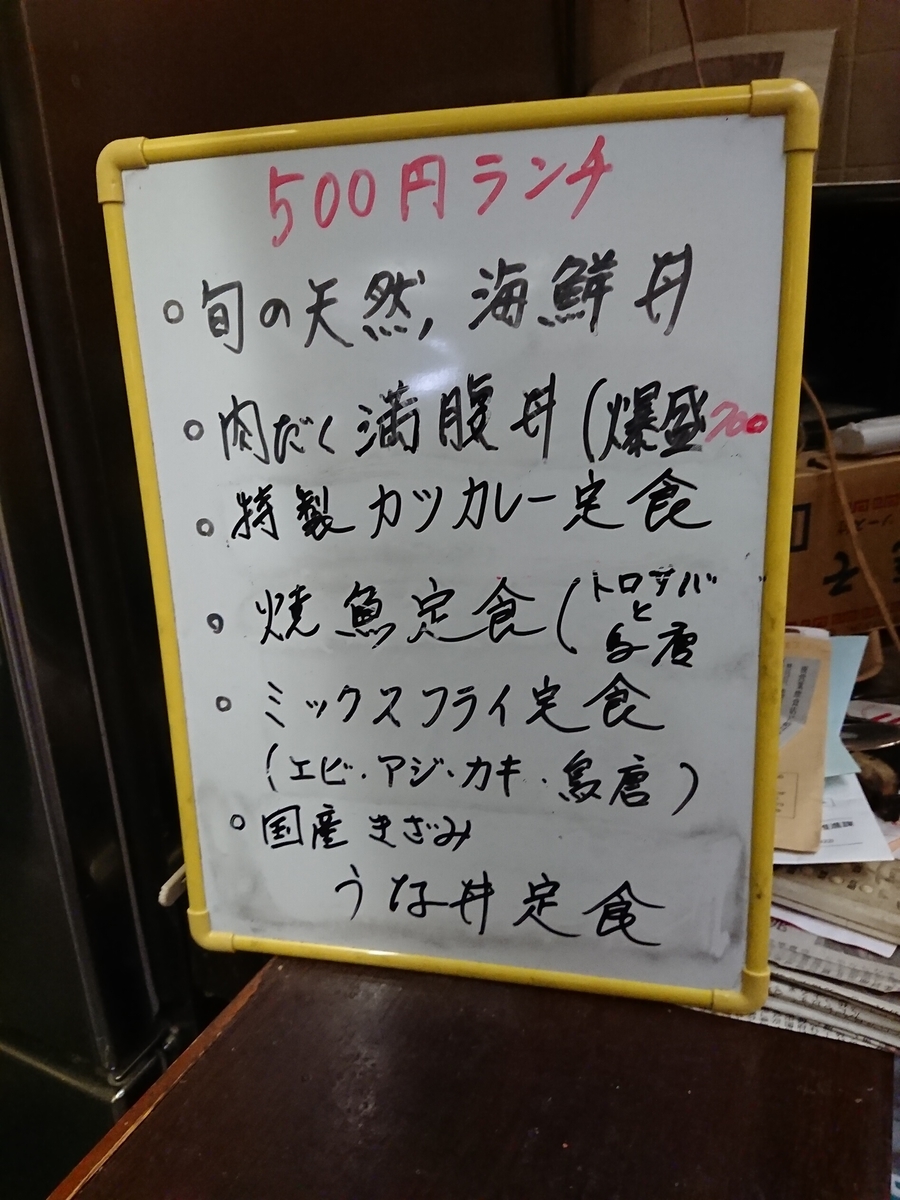 500円ランチ
○旬の天然,海鮮丼
○肉だく満腹丼(爆盛700
○特製カツカレー定食
○焼魚定食(トロサバ
と
鳥唐
○ミックスフライ定食
(エビ・アジ・カキ・鳥唐)
○国産きざみ
うな丼定食